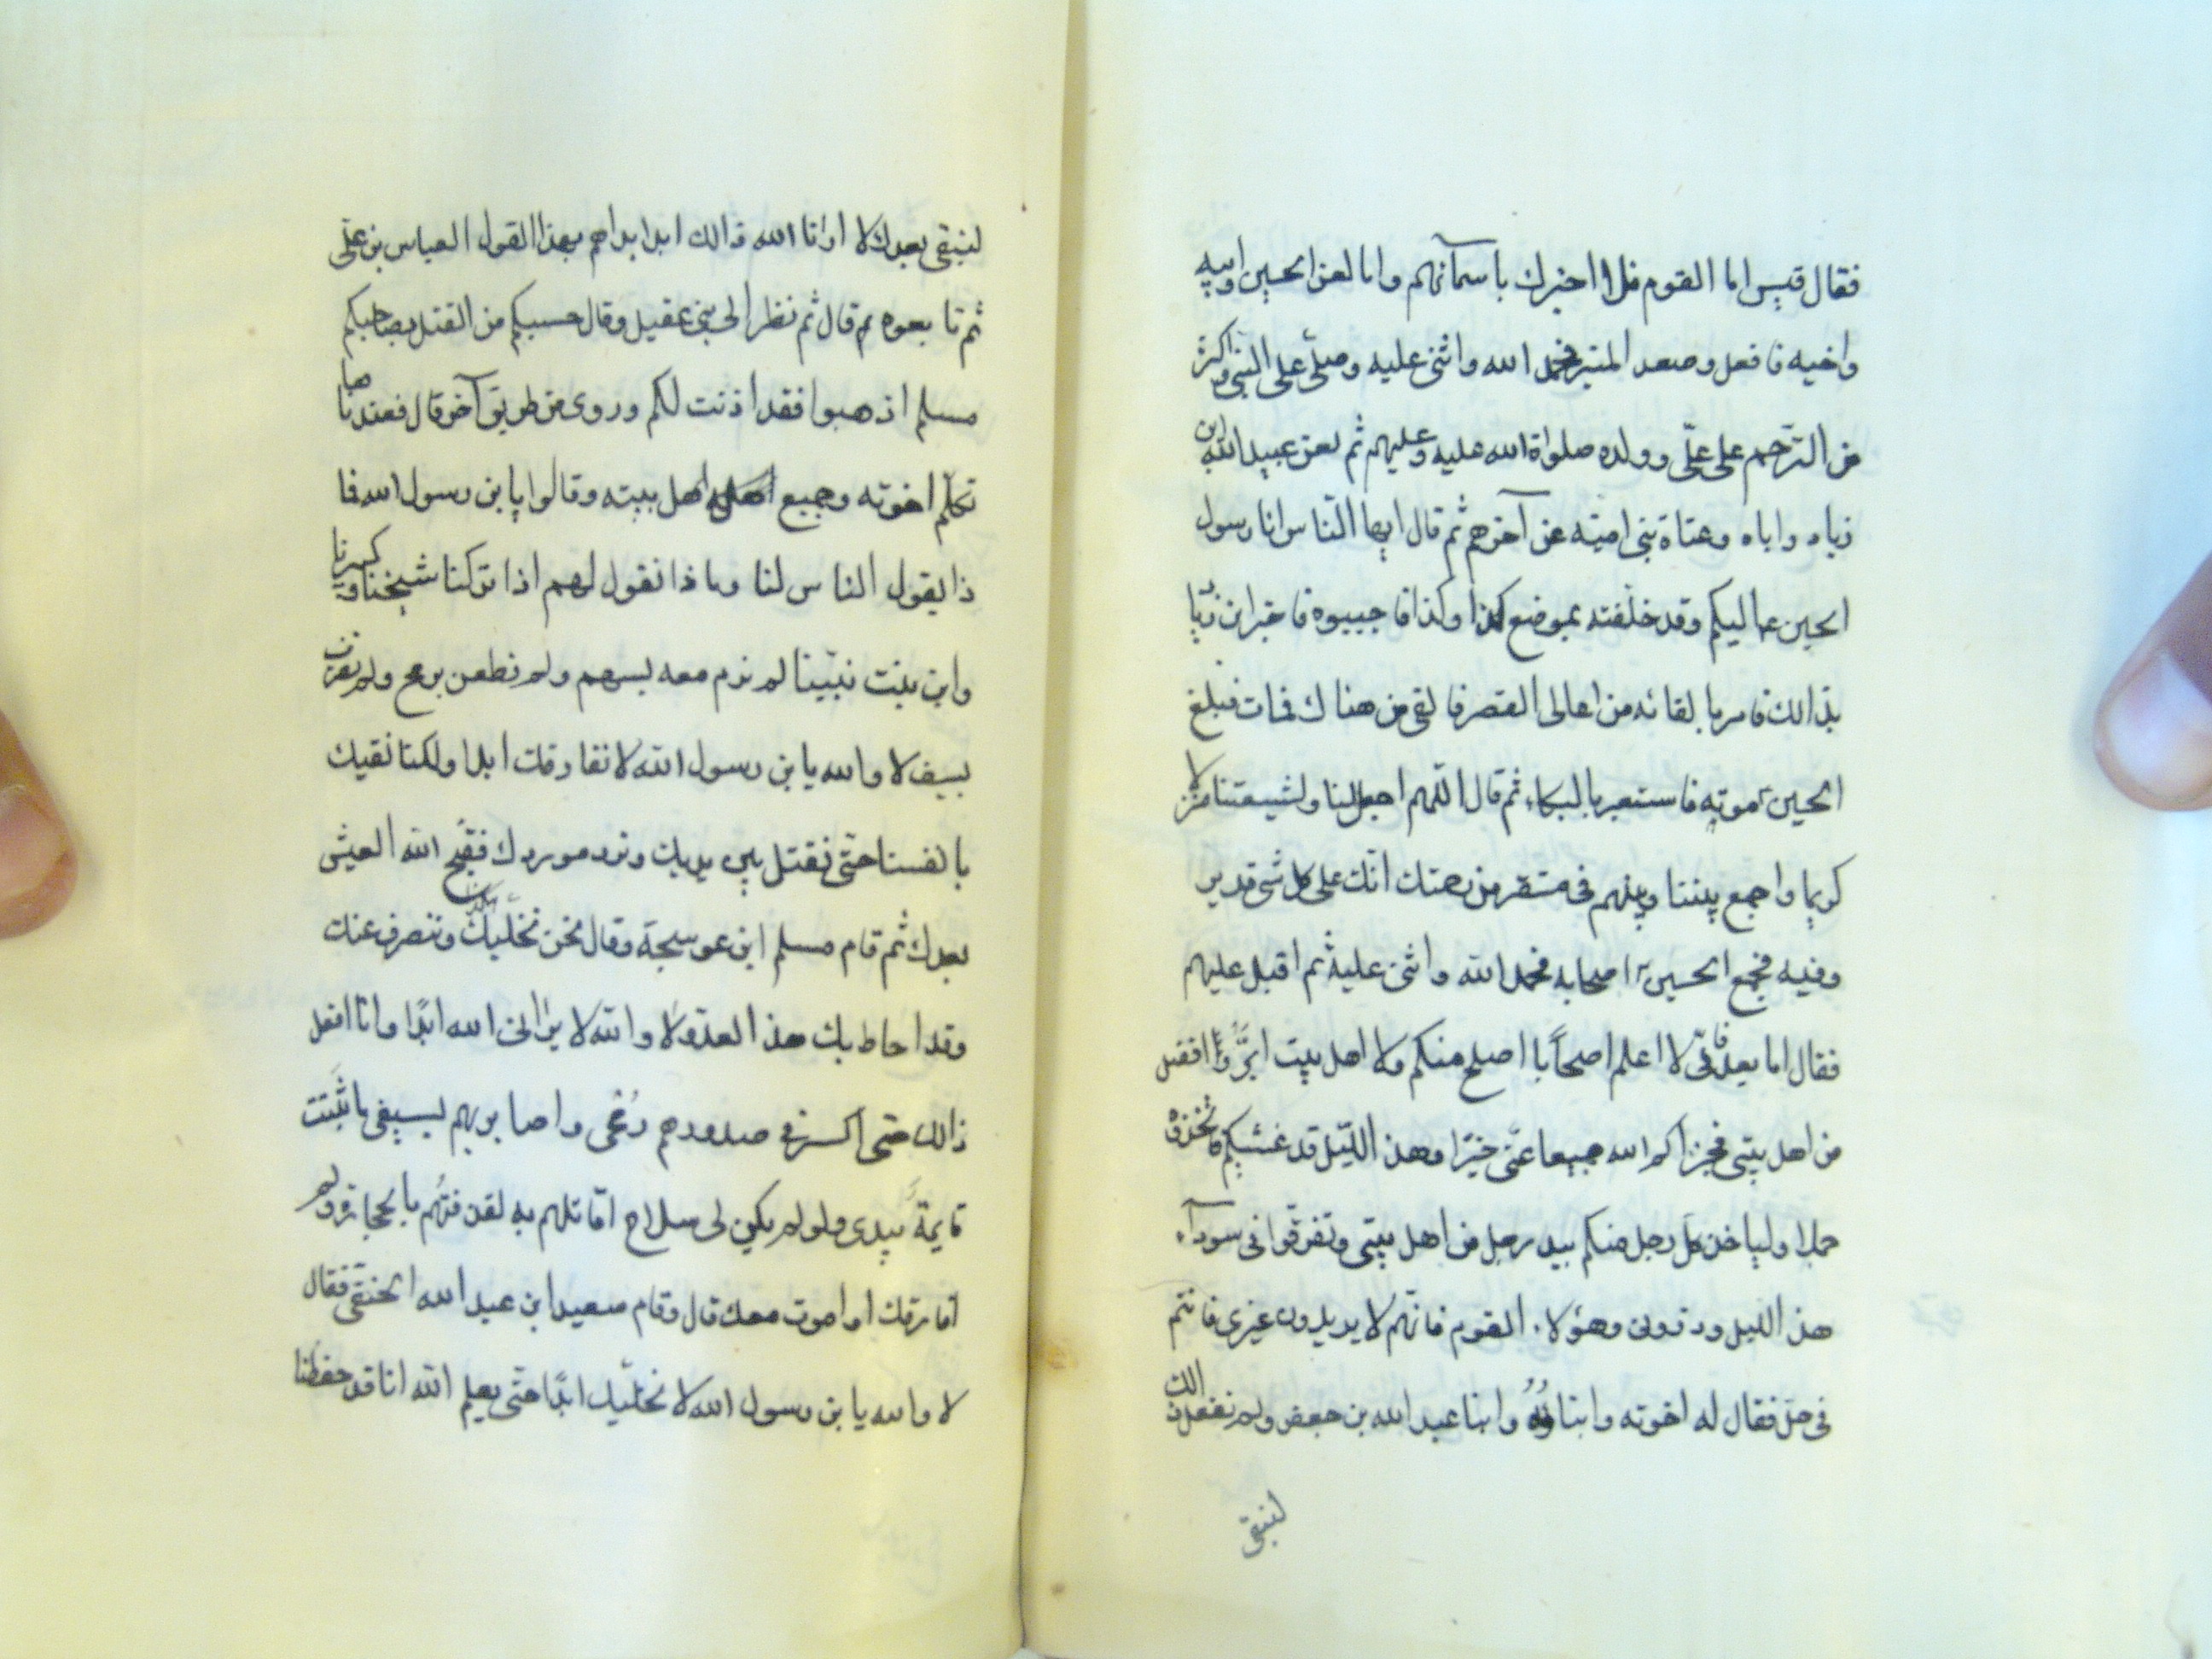 فقال قيس اما القوم فلا اخبرك باسمآئهم واما لعن الحسين وابيه
واخيه فافعل وصعد المنبر فحمد الله واثنى عليه وصلّى على النبى واكثر
من الترّحم على علّى وولده صلواة الله عليه وعليهم ثم لعن عبيد الله ابن
زياد واباه وعتاة بنى اميّه عن آخرهم ثم قال ايها النّاس انا رسول
الحسين ع اليكم وقد خلّفته بموضع كذا وكذا فاجيبوه فاخبر ابن زيا
بذالك فامر بالقائه من اعالى القصر فالقى من هناك فمات فبلغ
الحسين موته فاستعبر بالبكاء ثم قال اللّهم اجعل لنا ولشيعتنا منزلا
كريما واجمع بيننا وبينهم فى مستقر من رحمتك انّك على كل شى قدير
وفيه فجمع الحسين اصحابه فحمد الله واثنى عليه ثم اقبل عليهم
فقال اما بعد فانّى لا اعلم اصحاًبا اصلح منكم ولا اهل بيت ابرَّ وافضل
من اهل بيتى فجزاكم الله جميعا عنّى خيًرا وهذ اللّيل قد غشيكم فاتخذوه
جملا ولياخذ كلّ رجل منكم بيد رجل من اهل بيتى وتفرقّوا فى سوآد
هذ الليل وذرونى وهؤلاء القوم فانّهم لا يريدون غيرى فانتم
فى حلّ فقال له اخوته وابناؤُه وابنا عبد الله بن جعفر ولم نفعل ذالك
لنبقى
لنبقى بعدك لا ارانا الله ذالك ابدا بداهم بهذا القول العباس بن علّى
ثم تابعوه قال ثم نظر الى بنى عقيل وقال حسبكم من القتل بصاحبكم
مسلم اذهبوا فقد اذنت لكم وروى من طريق آخر قال فعندها
تكلّم اخوته وجميع اهل بيته وقالوا يا بن رسول الله فما
ذا يقول الناس لنا وماذا نقول لهم اذا تركنا شيخنا وكبيرنا
وابن بنت نبيّنا لم نرم معه بسهم ولم نطعن برمح ولم نضرب
بسيف لا والله يا بن رسول الله لا نفارقك ابدا ولكنا نقيك
بانفسنا حتّى نقتل بين يديك ونرد موردك فقبّح الله العيش
بعدك ثم قام مسلم ابن عوسجة وقال نحن نخلّيك هكذا وننصرف عنك
وقد احاط بك هذ العدّو لا والله لا يرانى الله ابًدا وانا افعل
ذالك حتى اكسر فى صدورهم رُمحى واضاربهم بسيفى ما ثَبَتَت
قايمةَ بيدى ولو لم يكن لى سلاح اقاتلهم به لقذفتهُم بالحجارة ولم
افارقك او اموت معك قال وقام سعيد ابن عبد الله الحنفى فقال
لا والله يا بن رسول الله لا نخلّيك ابًدا حتّى يعلم الله انا قد حفظنا